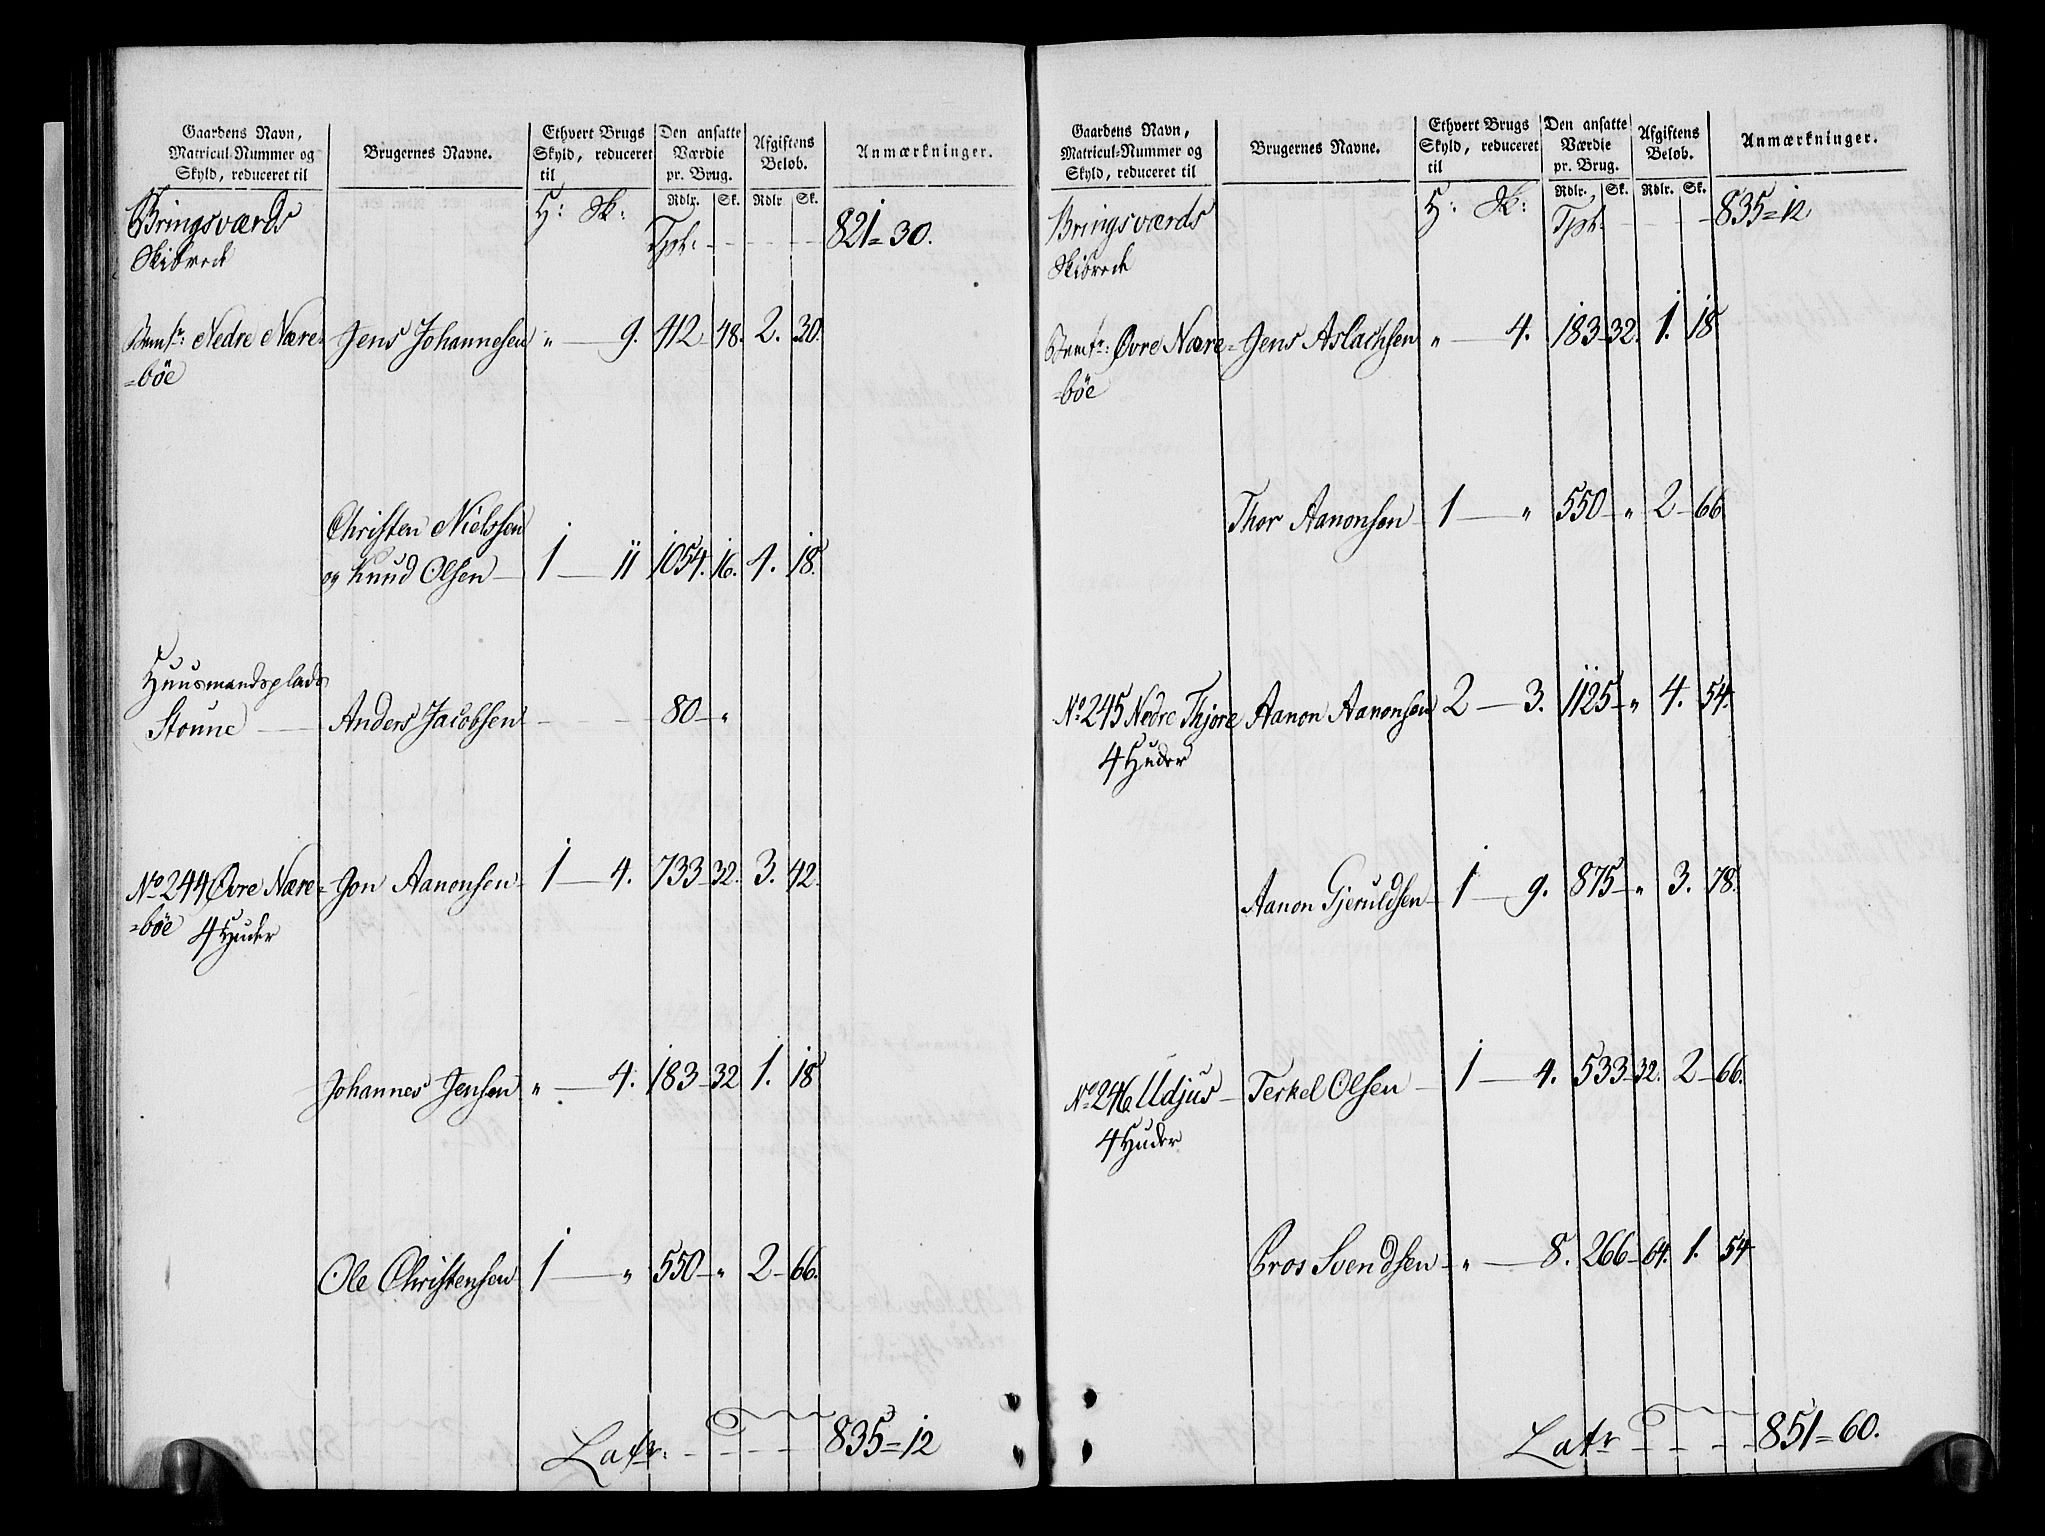 Gaardens Navn, Matricul-Nummer og Skyld, reduceret til
Brugernes Navne.
Ethvert Brugs Skyld, reduceret til
Den ansatte Værdie pr. Brug.
Afgiftens Beløb.
Anmærkninger.
H: Sk: Rdlr. Sk. Rdlr. Sk.
Bringsværds Tpt: 821=30.
Skibred
Nedre Nære= Jens Johannesen " 9. 412 48. 2. 30.
=bøe
Christen Nielssen
og Knud Olsen 1 11 1054. 16. 4. 18.
Huusmandsplads
Stoune Anders Jacobsen 80 "
No 244 Øvre Nære= Jon Aanonsen 1 4. 733 32. 3. 42.
=bøe 4 Huder
Johannes Jensen " 4. 183 32 1. 18
Ole Christensen 1 " 550 " 2 66.
Latr: 835=12
Gaardens Navn, Matricul-Nummer og Skyld, reduceret til
Brugernes Navne.
Ethvert Brugs Skyld, reduceret til
Den ansatte Værdie pr. Brug.
Afgiftens Beløb.
Anmærkninger.
H: Sk: Rdlr. Sk. Rdlr. Sk.
Bringsværds Tpt: 835=12
Skibred
Øvre Nære= Jens Aslachsen " 4. 183 32. 1. 18
=bøe
Thor Aanonsen 1 " 550 " 2 66
No 245 Nedre Thjore Aanon Aanonsen 2 3. 1125 " 4. 54.
4 Huder
Aanon Gjeruldsen 1 9. 875 " 3. 78.
No 246 Udjus Terkel Olsen 1 4. 533 32. 2 66.
4 Huder
Bros Svendsen " 8. 266 64. 1. 54
Latr 851=60.